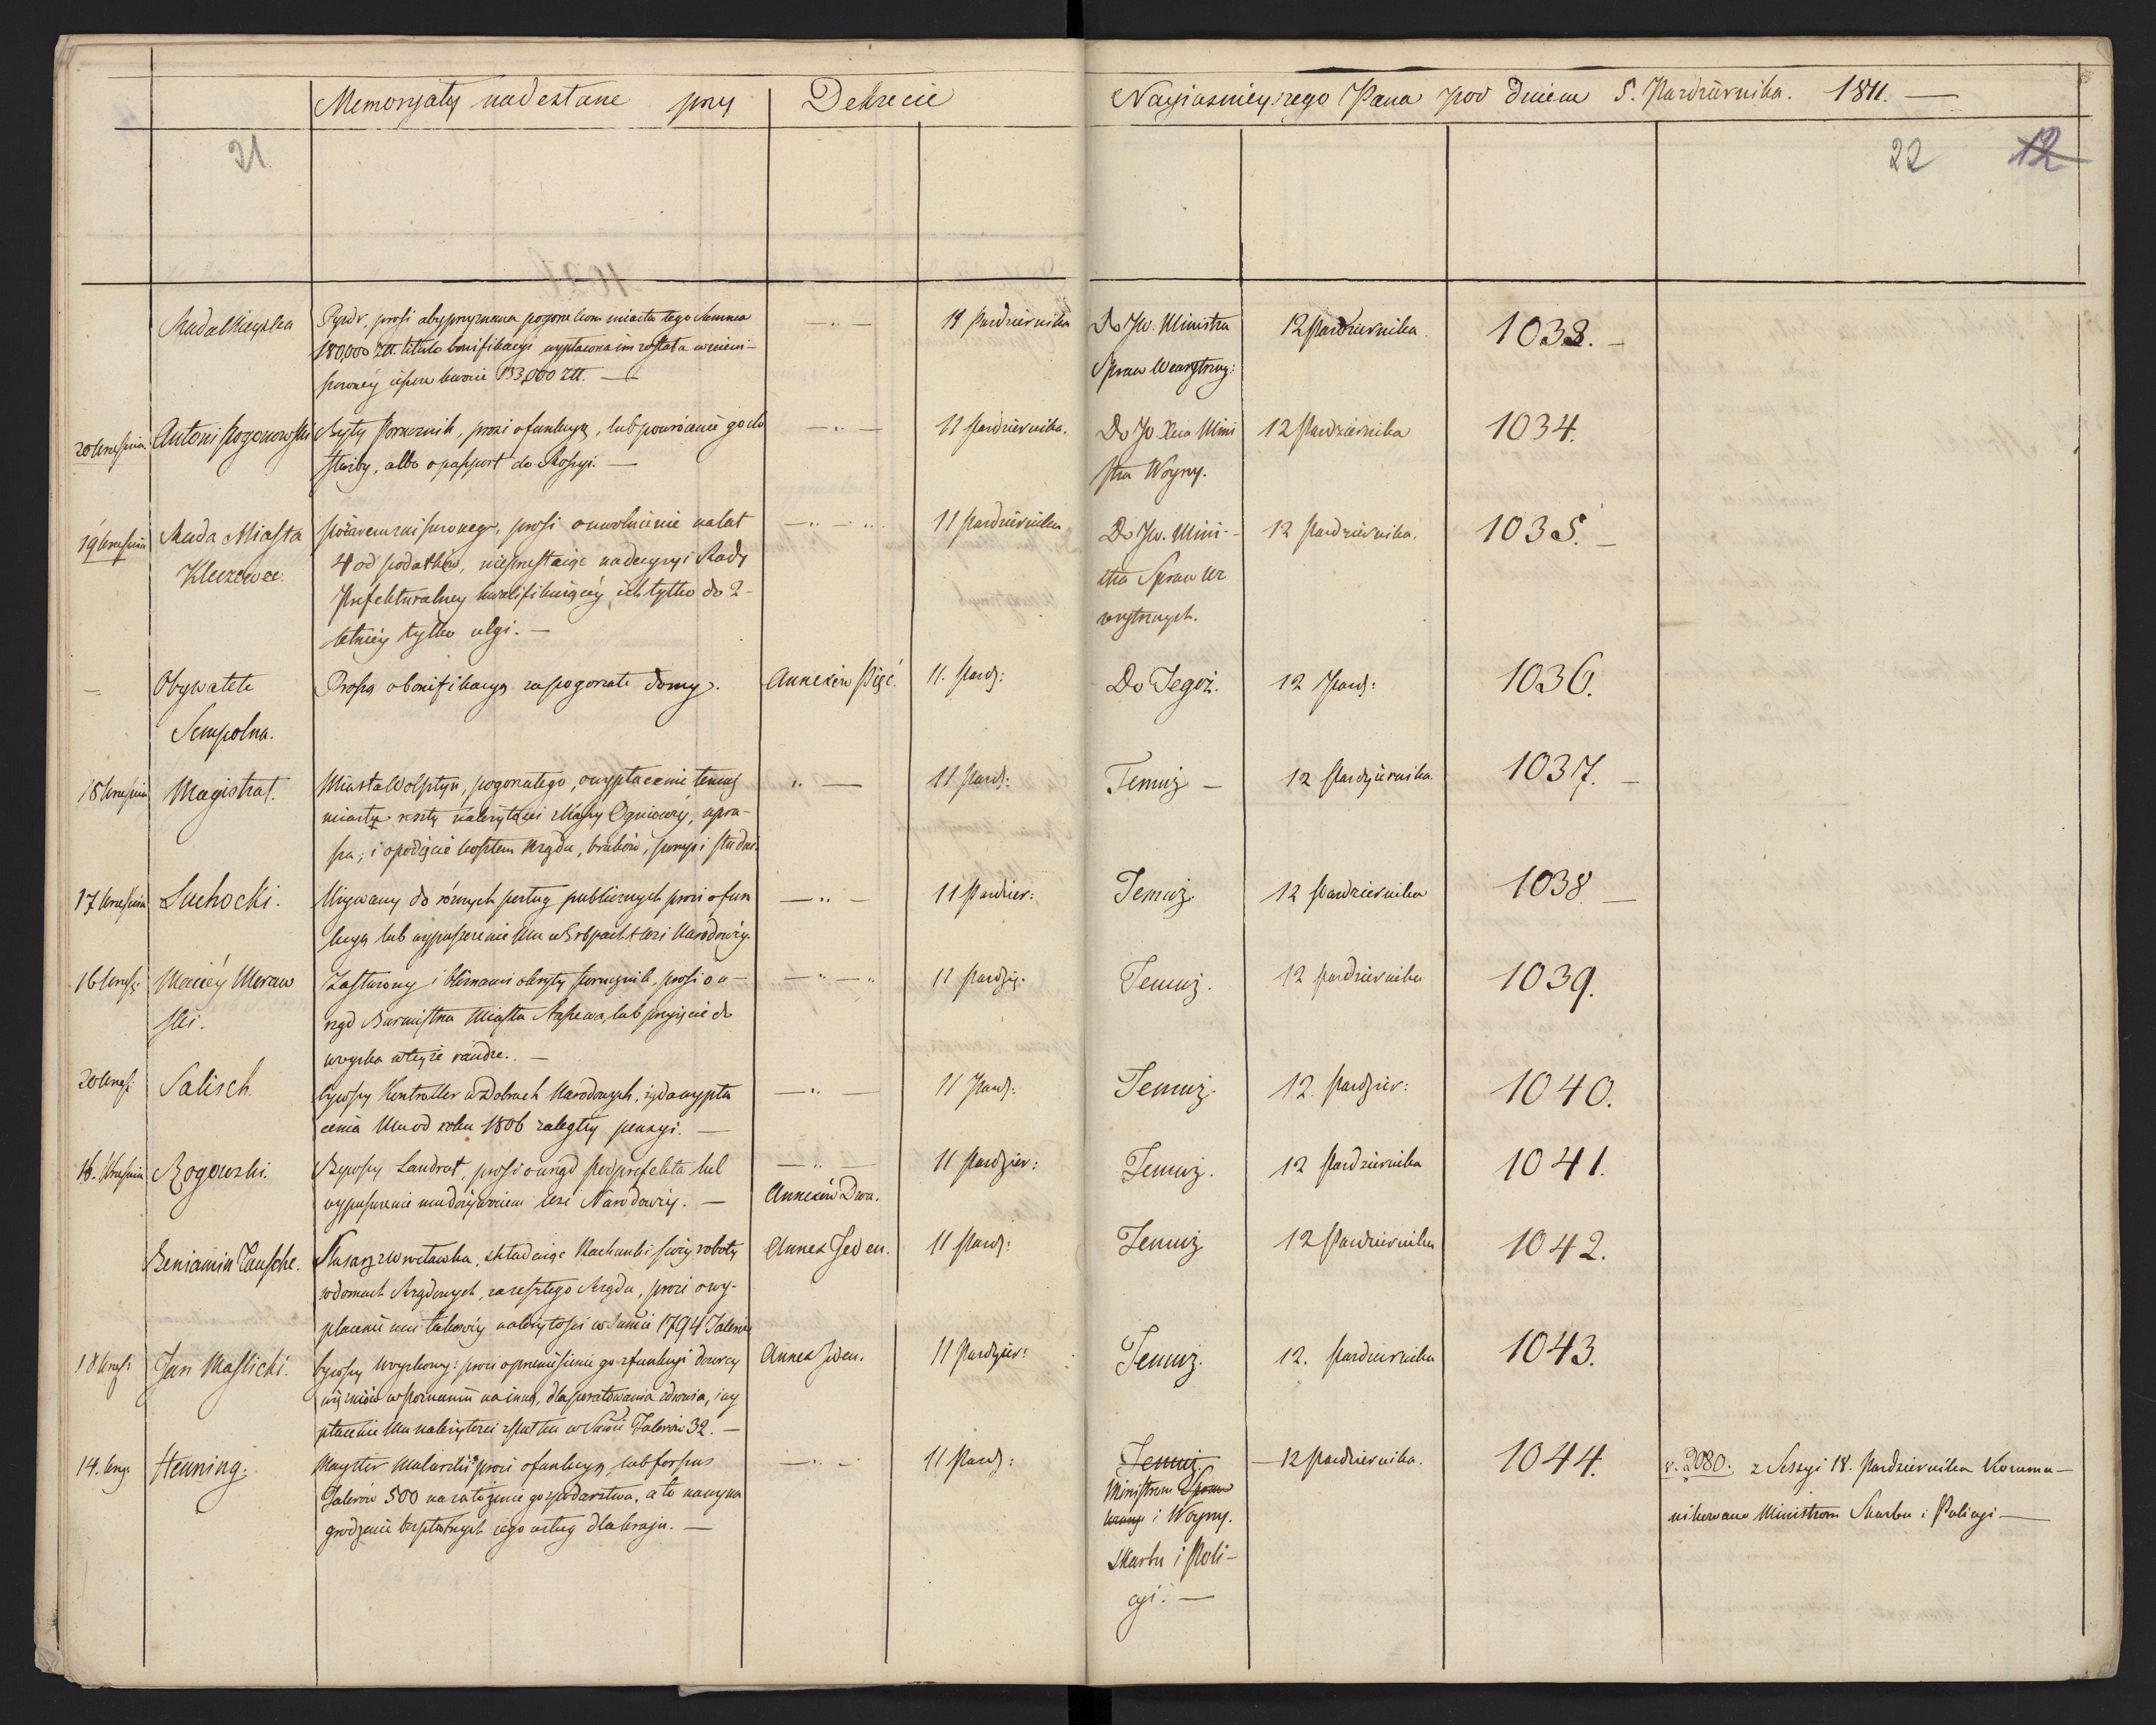 Memoryały nadesłane przy Dekrecie Nayiaśnieyszego Pana pod dniem 5. Pazdziernika. 1811. —
21 22 12
Rada Mieyska
Pyzdr, prosi aby przyznana pogorzelcom miasta tego Summa
180,000 Złł. titulo bonifikacyi wypłacona im została w zmniey-
szoney iészcze kwocie 133,000 Złł. —
— .. — 11 Pazdziernika
Do JW. Ministra
Spraw Wewnętrzny:
12 Pazdziernika. 1033. —
20 Wrzesnia. Antoni Rogonowski
Były Porucznik, prosi o funkcyą, lub powrócenie go do
służby, albo o passport do Rossyi. —
— .. — 11 Pazdziernika.
Do JO Xcia Mini
stra Woyny.
12 Pazdziernika 1034.
19 Wrzesnia Rada Miasta
Kleczewa.
pożarem zniszczonego, prosi o uwolnienie na lat
4 od podatków, nieprzestaiąc na decyzyi Rady
Prefekturalney kwalifikuiącéy ich tylko do 2-
letniéy tylko ulgi. —
— .. — .. 11 Pazdziernika
Do JW. Mini-
stra Spraw We
wnętrznych.
12 Pazdziernika. 1035. —
— Obywatele
Sempolna.
Proszą o bonifikacyą za pogorzałe domy.
Annexów Pięć. 11. Pazdz:
Do Tegoż. 12 Pazdz: 1036.
18 Wrzesnia Magistrat.
Miasta Wolsztyn, pogorzałego, o wypłacenie temuż
miastu reszty należytości z Kassy Ogniowéy, upra-
sza; i o podięcie kosztem Rządu, bruków, pomp i studni.
.. — 11 Pazdz:
Temuż — 12 Pazdziernika. 1037. —
17 Wrzesnia Suchocki.
Używany do róznych posług publicznych prosi o fun
kcyą lub wypuszczenie Mu w Erbpacht wsi Narodowéy.
— .. — 11 Pazdzier:
Temuż. 12 Pazdziernika 1038. —
16 Wrześ: Maciéy Moraw
ski.
Zasłużony i bliznami okryty Porucznik, prosi o u-
rząd Burmistrza Miasta Raszkowa, lub przyięcie do
woyska w teyże randze. —
— .. — .. 11 Pazdzie:
Temuż. 12 Pazdziernika 1039.
20 Wrześ: Salisch.
bywszy Kontroller w Dobrach Narodowych, żąda wypła
cenia Mu od roku 1806 zaległéy pensyi. —
— .. — 11 Pazdz:
Temuż. 12. Pazdzier: 1040.
16. Wrzesnia Rogowski.
Bywszy Landrat, prosi o urząd Podprefekta lub
wypuszczenie mu dożywociem wsi Narodowéy. —
— .. —
Annexów Dwa.
11 Pazdzier:
Temuż. 12 Pazdziernika 1041.
Beniamin Tausche.
Slusarz z Wrocławka, składaiąc Rachunki swéy roboty
w domach Rządowych, za zeszłego Rządu, prosi o wy-
płacenie mu takowéy należytości w Summie 1794 Talerów
Annex Jeden. 11 Pazdz:
Temuż 12 Pazdziernika 1042.
18 Wrześ: Jan Maslicki.
bywszy Woyskowy: prosi o przeniesienie go z funkcyi dozorcy
więzniów w Poznaniu na inną, dla poratowania zdrowia, i wy
płacenie Mu należytości w Summie Talerów 32. —
Annex Jeden. 11 Pazdzier:
Temuż. 12. Pazdziernika 1043.
14. Wrz: Henning.
Mayster Malarski prosi o funkcyą, lub forszus
Talerów 500 na założenie gospodarstwa, a to na wyna
grodzenie bezpłatnych iego usług dla kraju. —
— .. — 11 Pazdz:
Temuż.
Ministrom Spraw
i Woyny.
Skarbu i Poli-
cyi. —
— 12 Pazdziernika. 1044.
v. 2080. z Sessyi 18. Pazdziernika Kommu-
nikowano Ministrom Skarbu i Policyi —